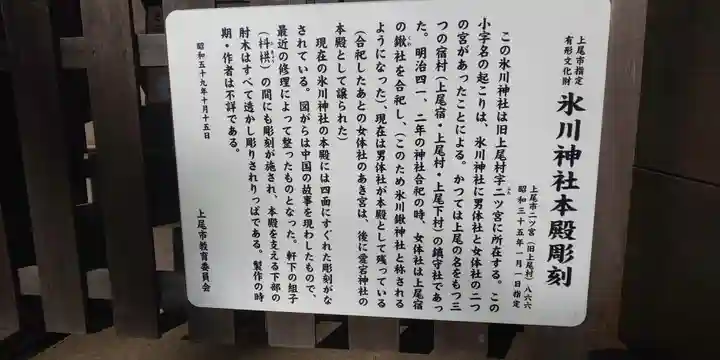 上尾市指定
有形文化財
氷川神社本殿彫刻
上尾市二ツ宮（旧上尾村）八六六
昭和三十五年一月一日指定
この氷川神社は旧上尾村字二ツ宮に所在する。この
小字名の起こりは、氷川神社に男体社と女体社の二つ
の宮があったことによる。かつては上尾の名をもつ三
つの宿村（上尾宿・上尾村・上尾下村）の鎮守社であっ
た。明治四一、二年の神社合祀の時、女体社は上尾宿
の鍬社を合祀し、（このため氷川鍬神社と称される
ようになった）、現在は男体社が本殿として残っている
（合祀したあとの女体社のあき宮は、後に愛宕神社の
本殿として譲られた）
現在の氷川神社の本殿には四面にすぐれた彫刻がな
されている。図がらは中国の故事を現わしたもので、
最近の修理によって整ったものとなった。軒下の組子
（枓栱）の間にも彫刻が施され、本殿を支える下部の
肘木はすべて透かし彫りされりっぱである。製作の時
期・作者は不詳である。
昭和五十九年十月十五日
上尾市教育委員会